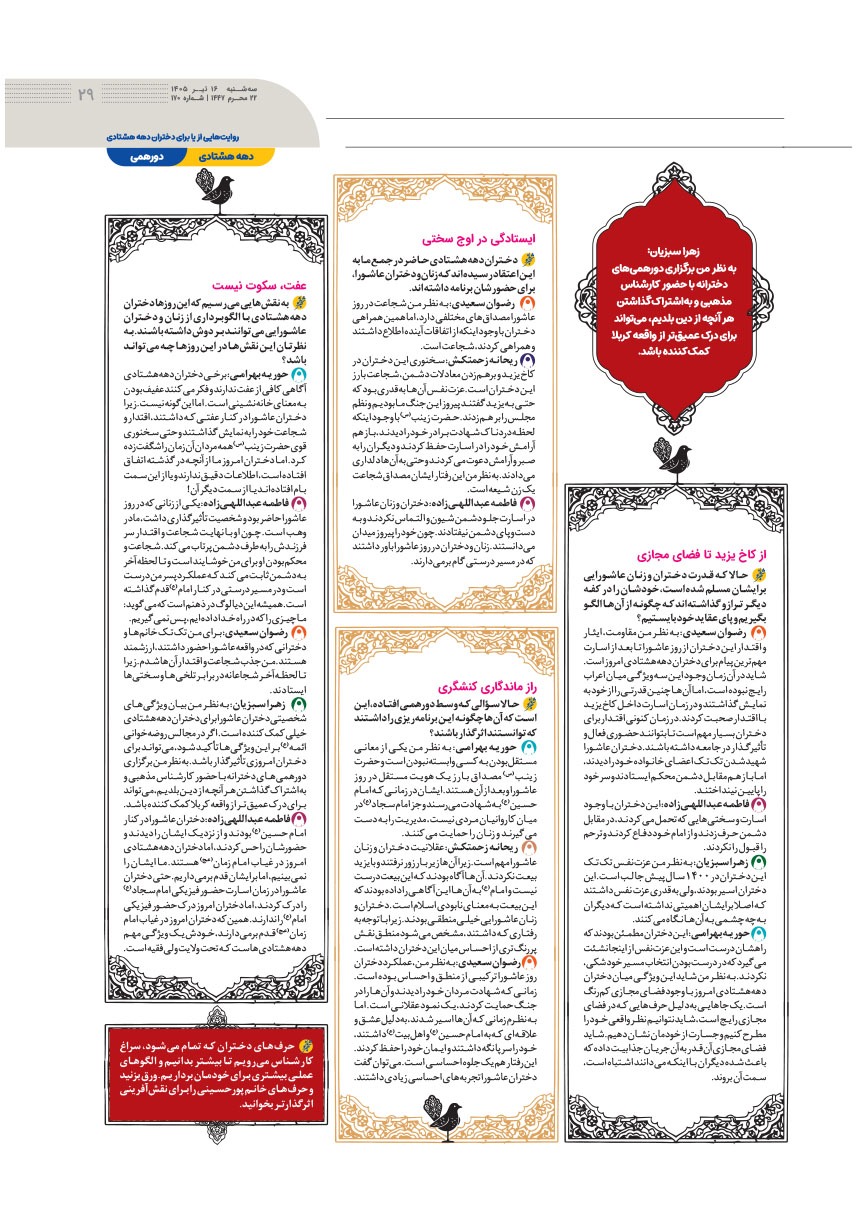 سه‌شنبه ۱۶ تیر ۱۴۰۵
۲۲ محرم ۱۴۴۷ | شماره ۱۷۰
۲۹
روایت‌هایی از یا برای دختران دهه هشتادی
دهه هشتادی
دورهمی
زهرا سبزیان:
به نظر من برگزاری دورهمی‌های
دخترانه با حضور کارشناس
مذهبی و به‌اشتراک‌گذاشتن
هر آنچه از دین بلدیم، می‌تواند
برای درک عمیق‌تر از واقعه کربلا
کمک‌کننده باشد.
از کاخ یزید تا فضای مجازی
حالا که قدرت دختران و زنان عاشورایی
برایشان مسلم شده است، خودشان را در کفه
دیگر ترازو گذاشته‌اند که چگونه از آن‌ها الگو
بگیریم و پای عقاید خود بایستیم؟
رضوان سعیدی: به نظر من مقاومت، ایثار
و اقتدار این دختران از روز عاشورا تا بعد از اسارت
مهم‌ترین پیام برای دختران دهه هشتادی امروز است.
شاید در آن زمان وجود این سه ویژگی میان اعراب
رایج نبوده است، اما آن‌ها چنین قدرتی را از خود به
نمایش گذاشتند و در زمان اسارت داخل کاخ یزید
با اقتدار صحبت کردند. در زمان کنونی اقتدار برای
دختران بسیار مهم است تا بتوانند حضوری فعال و
تأثیرگذار در جامعه داشته باشند. دختران عاشورا
شهیدشدن تک‌تک اعضای خانواده خود را دیدند،
اما باز هم مقابل دشمن محکم ایستادند و سر خود
را پایین نینداختند.
فاطمه عبداللهی‌زاده: این دختران با وجود
اسارت و سختی‌هایی که تحمل می‌کردند، در مقابل
دشمن حرف زدند و از امام خود دفاع کردند و ترحم
را قبول نکردند.
زهرا سبزیان: به نظر من عزت نفس تک‌تک
این دختران در ۱۴۰۰ سال پیش جالب است. این
دختران اسیر بودند، ولی به‌قدری عزت نفس داشتند
که اصلا برایشان اهمیتی نداشته است که دیگران
به چه چشمی به آن‌ها نگاه می‌کنند.
حوریه بهرامی: این دختران مطمئن بودند که
راهشان درست است و این عزت نفس از اینجا نشئت
می‌گیرد که در درست‌بودن انتخاب مسیر خود شکی،
نکردند. به نظر من شاید این ویژگی میان دختران
دهه هشتادی امروز با وجود فضای مجازی کم‌رنگ
است. یک جاهایی به دلیل حرف‌هایی که در فضای
مجازی رایج است، شاید نتوانیم نظر واقعی خود را
مطرح کنیم و جسارت از خودمان نشان دهیم. شاید
فضای مجازی آن‌قدر به آن جریان جذابیت داده که
باعث شده دیگران با اینکه می‌دانند اشتباه است،
سمت آن بروند.
ایستادگی در اوج سختی
دختران دهه هشتادی حاضر در جمع ما به
این اعتقاد رسیده‌اند که زنان و دختران عاشورا،
برای حضورشان برنامه داشته‌اند.
رضوان سعیدی: به نظر من شجاعت در روز
عاشورا مصداق‌های مختلفی دارد، اما همین همراهی
دختران با وجود اینکه از اتفاقات آینده اطلاع داشتند
و همراهی کردند، شجاعت است.
ریحانه زحمتکش: سخنوری این دختران در
کاخ یزید و برهم‌زدن معادلات دشمن، شجاعت بارز
این دختران است. عزت نفس آن‌ها به قدری بود که
حتی به یزید گفتند پیروز این جنگ ما بودیم و نظم
مجلس را بر هم زدند. حضرت زینب(س) با وجود اینکه
لحظه دردناک شهادت برادر خود را دیدند، باز هم
آرامش خود را در اسارت حفظ کردند و دیگران را به
صبر و آرامش دعوت می‌کردند و حتی به آن‌ها دلداری
می‌دادند. به نظر من این رفتار ایشان مصداق شجاعت
یک زن شیعه است.
فاطمه عبداللهی‌زاده: دختران و زنان عاشورا
در اسارت جلو دشمن شیون و التماس نکردند و به
دست و پای دشمن نیفتادند. چون خود را پیروز میدان
می‌دانستند. زنان و دختران در روز عاشورا باور داشتند
که در مسیر درستی گام برمی‌دارند.
راز ماندگاری کنشگری
حالا سؤالی که وسط دورهمی افتاده، این
است که آن‌ها چگونه این برنامه‌ریزی را داشتند
که توانستند اثرگذار باشند؟
حوریه بهرامی: به نظر من یکی از معانی
مستقل‌بودن به کسی وابسته نبودن است و حضرت
زینب(س) مصداق بارز یک هویت مستقل در روز
عاشورا و بعد از آن هستند. ایشان در زمانی که امام
حسین(ع) به شهادت می‌رسند و جز امام سجاد(ع) در
میان کاروانیان مردی نیست، مدیریت را به دست
می‌گیرند و زنان را حمایت می‌کنند.
ریحانه زحمتکش: عقلانیت دختران و زنان
عاشورا مهم است. زیرا آن‌ها زیر بار زور نرفتند و با یزید
بیعت نکردند. آن‌ها آگاه بودند که این بیعت درست
نیست و امام(ع) به آن‌ها این آگاهی را داده بودند که
این بیعت به معنای نابودی اسلام است. دختران و
زنان عاشورایی خیلی منطقی بودند. زیرا با توجه به
رفتاری که داشتند، مشخص می‌شود منطق نقش
پررنگ‌تری از احساس میان این دختران داشته است.
رضوان سعیدی: به نظر من، عملکرد دختران
روز عاشورا ترکیبی از منطق و احساس بوده است.
زمانی که شهادت مردان خود را دیدند و آن‌ها را در
جنگ حمایت کردند، یک نمود عقلانی است. اما
به نظرم زمانی که آن‌ها اسیر شدند، به دلیل عشق و
علاقه‌ای که به امام حسین(ع) و اهل بیت(ع) داشتند،
خود را سر پا نگه داشتند و ایمان خود را حفظ کردند.
این رفتار هم یک جلوه احساسی است. می‌توان گفت
دختران عاشورا تجربه‌های احساسی زیادی داشتند.
عفت، سکوت نیست
به نقش‌هایی می‌رسیم که این روزها دختران
دهه هشتادی با الگوبرداری از زنان و دختران
عاشورایی می‌توانند بر دوش داشته باشند. به
نظرتان این نقش‌ها در این روزها چه می‌تواند
باشد؟
حوریه بهرامی: برخی دختران دهه هشتادی
آگاهی کافی از عفت ندارند و فکر می‌کنند عفیف‌بودن
به معنای خانه‌نشینی است. اما این‌گونه نیست. زیرا
دختران عاشورا در کنار عفتی که داشتند، اقتدار و
شجاعت خود را به نمایش گذاشتند و حتی سخنوری
قوی حضرت زینب(س) همه مردان آن زمان را شگفت‌زده
کرد. اما دختران امروز ما از آنچه در گذشته اتفاق
افتاده است، اطلاعات دقیق ندارند و یا از این سمت
بام افتاده‌اند یا از سمت دیگر آن!
فاطمه عبداللهی‌زاده: یکی از زنانی که در روز
عاشورا حاضر بود و شخصیت تأثیرگذاری داشت، مادر
وهب است. چون او با نهایت شجاعت و اقتدار سر
فرزندش را به طرف دشمن پرتاب می‌کند. شجاعت و
محکم‌بودن او برای من خوشایند است و تا لحظه آخر
به دشمن ثابت می‌کند که عملکرد پسر من درست
است و در مسیر درستی در کنار امام(ع) قدم گذاشته
است. همیشه این دیالوگ در ذهنم است که می‌گوید:
ما چیزی را که در راه خدا داده‌ایم، پس نمی‌گیریم.
رضوان سعیدی: برای من تک‌تک خانم‌ها و
دخترانی که در واقعه عاشورا حضور داشتند، ارزشمند
هستند. من جذب شجاعت و اقتدار آن‌ها شدم. زیرا
تا لحظه آخر شجاعانه در برابر تلخی‌ها و سختی‌ها
ایستادند.
زهرا سبزیان: به نظر من بیان ویژگی‌های
شخصیتی دختران عاشورا برای دختران دهه هشتادی
خیلی کمک‌کننده است. اگر در مجالس روضه‌خوانی
ائمه(ع) بر این ویژگی‌ها تأکید شود، می‌تواند برای
دختران امروزی تأثیرگذار باشد. به نظر من برگزاری
دورهمی‌های دخترانه با حضور کارشناس مذهبی و
به اشتراک گذاشتن هر آنچه از دین بلدیم، می‌تواند
برای درک عمیق‌تر از واقعه کربلا کمک‌کننده باشد.
فاطمه عبداللهی‌زاده: دختران عاشورا در کنار
امام حسین(ع) بودند و از نزدیک ایشان را دیدند و
حضورشان را حس کردند، اما دختران دهه هشتادی
امروز در غیاب امام زمان(عج) هستند. ما ایشان را
نمی‌بینیم، اما برایشان قدم برمی‌داریم. حتی دختران
عاشورا در زمان اسارت حضور فیزیکی امام سجاد(ع)
را درک کردند، اما دختران امروز درک حضور فیزیکی
امام(ع) را ندارند. همین که دختران امروز در غیاب امام
زمان(عج) قدم برمی‌دارند، خودش یک ویژگی مهم
دهه هشتادی‌هاست که تحت ولایت ولی فقیه است.
حرف‌های دختران که تمام می‌شود، سراغ
کارشناس می‌رویم تا بیشتر بدانیم و الگوهای
عملی بیشتری برای خودمان برداریم. ورق بزنید
و حرف‌های خانم پورحسینی را برای نقش‌آفرینی
اثرگذارتر بخوانید.